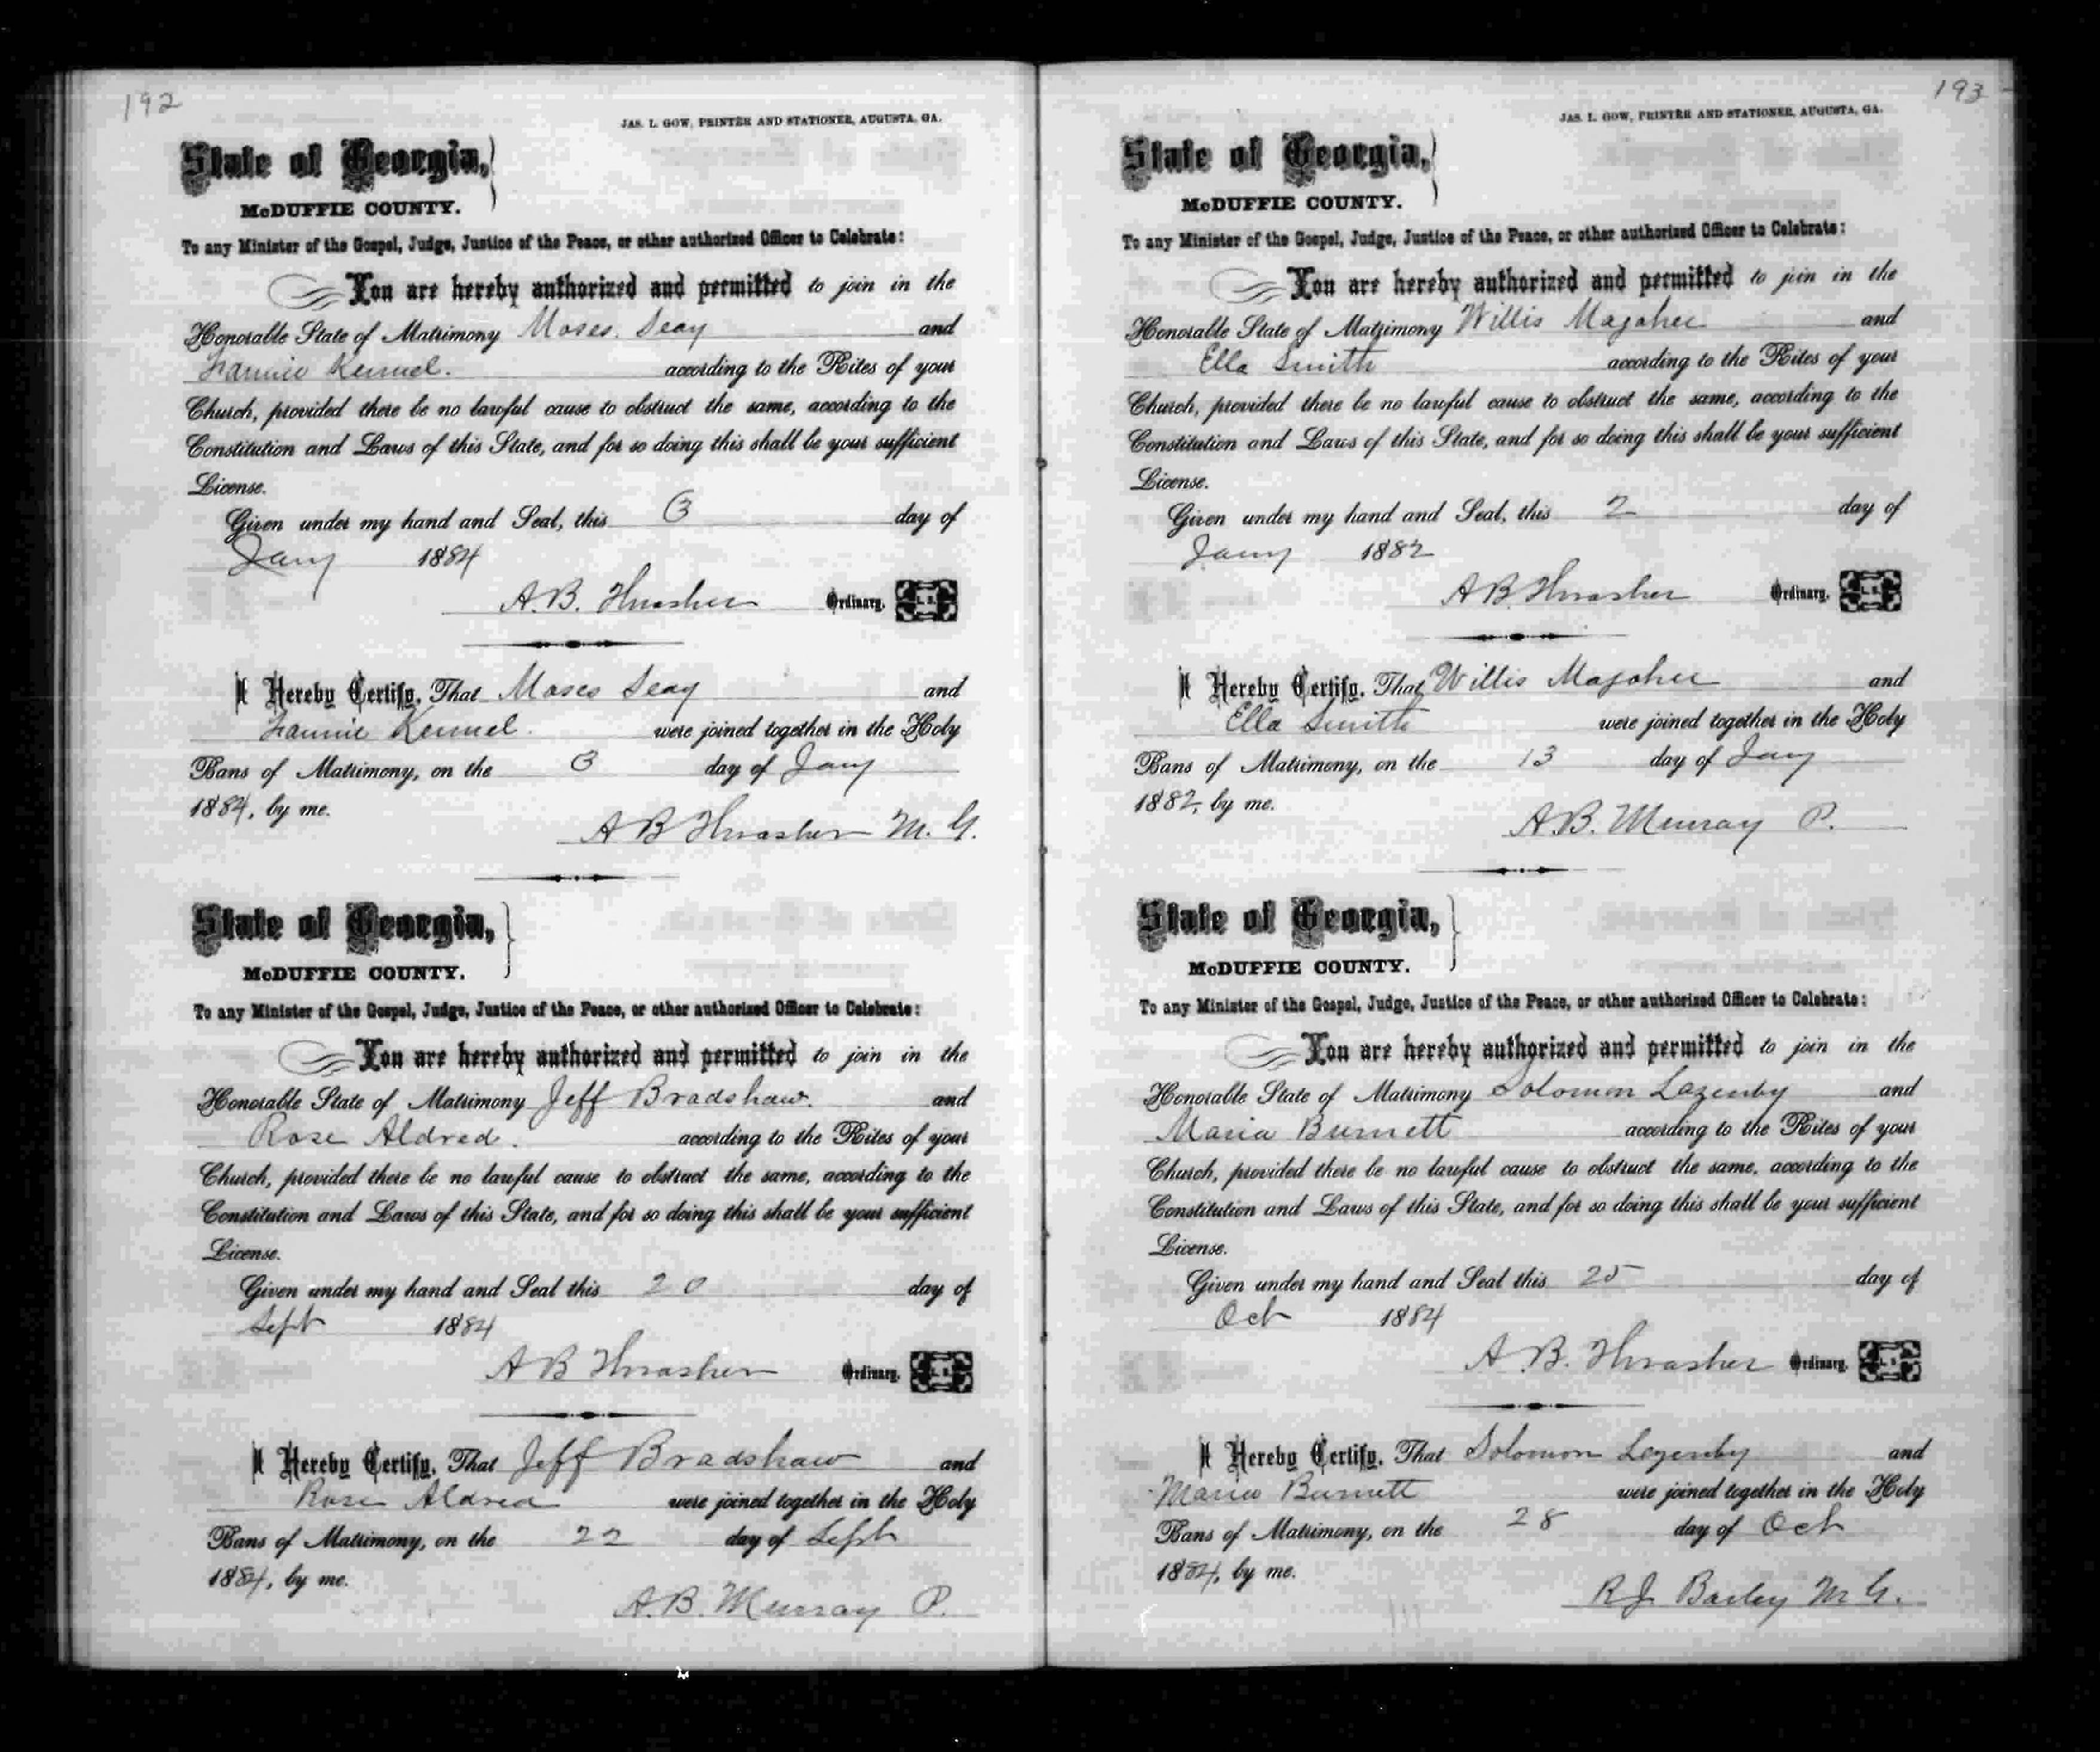 192
JAS. L. GOW, PRINTER AND STATIONER, AUGUSTA, GA.
State of Georgia,
McDUFFIE COUNTY.
To any Minister of the Gospel, Judge, Justice of the Peace, or other authorized Officer to Celebrate:
You are hereby authorized and permitted to join in the
Honorable State of Matrimony Moses. Seay and
Fannie Kennel. according to the Rites of your
Church, provided there be no lawful cause to obstruct the same, according to the
Constitution and Laws of this State, and for so doing this shall be your sufficient
License.
Given under my hand and Seal, this 3 day of
Jany 1884
A.B. Thrasher Ordinary. L. S.
I Hereby Certify, That Moses Seay and
Fannie Kennel. were joined together in the Holy
Bans of Matrimony, on the 3 day of Jany
1884, by me.
A B Thrasher M. G.
State of Georgia,
McDUFFIE COUNTY.
To any Minister of the Gospel, Judge, Justice of the Peace, or other authorized Officer to Celebrate:
You are hereby authorized and permitted to join in the
Honorable State of Matrimony Jeff Bradshaw. and
Rose Aldred. according to the Rites of your
Church, provided there be no lawful cause to obstruct the same, according to the
Constitution and Laws of this State, and for so doing this shall be your sufficient
License.
Given under my hand and Seal this 20 day of
Sept 1884
A B Thrasher Ordinary. L. S.
I Hereby Certify, That Jeff Bradshaw and
Rose Aldred were joined together in the Holy
Bans of Matrimony, on the 22 day of Sept
1884, by me.
A.B. Murray P.
193
JAS. L. GOW, PRINTER AND STATIONER, AUGUSTA, GA.
State of Georgia,
McDUFFIE COUNTY.
To any Minister of the Gospel, Judge, Justice of the Peace, or other authorized Officer to Celebrate:
You are hereby authorized and permitted to join in the
Honorable State of Matrimony Willis Majoher and
Ella Smith according to the Rites of your
Church, provided there be no lawful cause to obstruct the same, according to the
Constitution and Laws of this State, and for so doing this shall be your sufficient
License.
Given under my hand and Seal, this 2 day of
Jany 1882
A B Thrasher Ordinary. L. S.
I Hereby Certify, That Willis Majoher and
Ella Smith were joined together in the Holy
Bans of Matrimony, on the 13 day of Jany
1882, by me.
A.B. Murray P.
State of Georgia,
McDUFFIE COUNTY.
To any Minister of the Gospel, Judge, Justice of the Peace, or other authorized Officer to Celebrate:
You are hereby authorized and permitted to join in the
Honorable State of Matrimony Solomon Lazenby and
Maria Burnett according to the Rites of your
Church, provided there be no lawful cause to obstruct the same, according to the
Constitution and Laws of this State, and for so doing this shall be your sufficient
License.
Given under my hand and Seal this 25 day of
Oct 1884
A.B. Thrasher Ordinary. L. S.
I Hereby Certify, That Solomon Lezenby and
Maria Burnett were joined together in the Holy
Bans of Matrimony, on the 28 day of Oct
1884, by me.
R J. Barley M G.